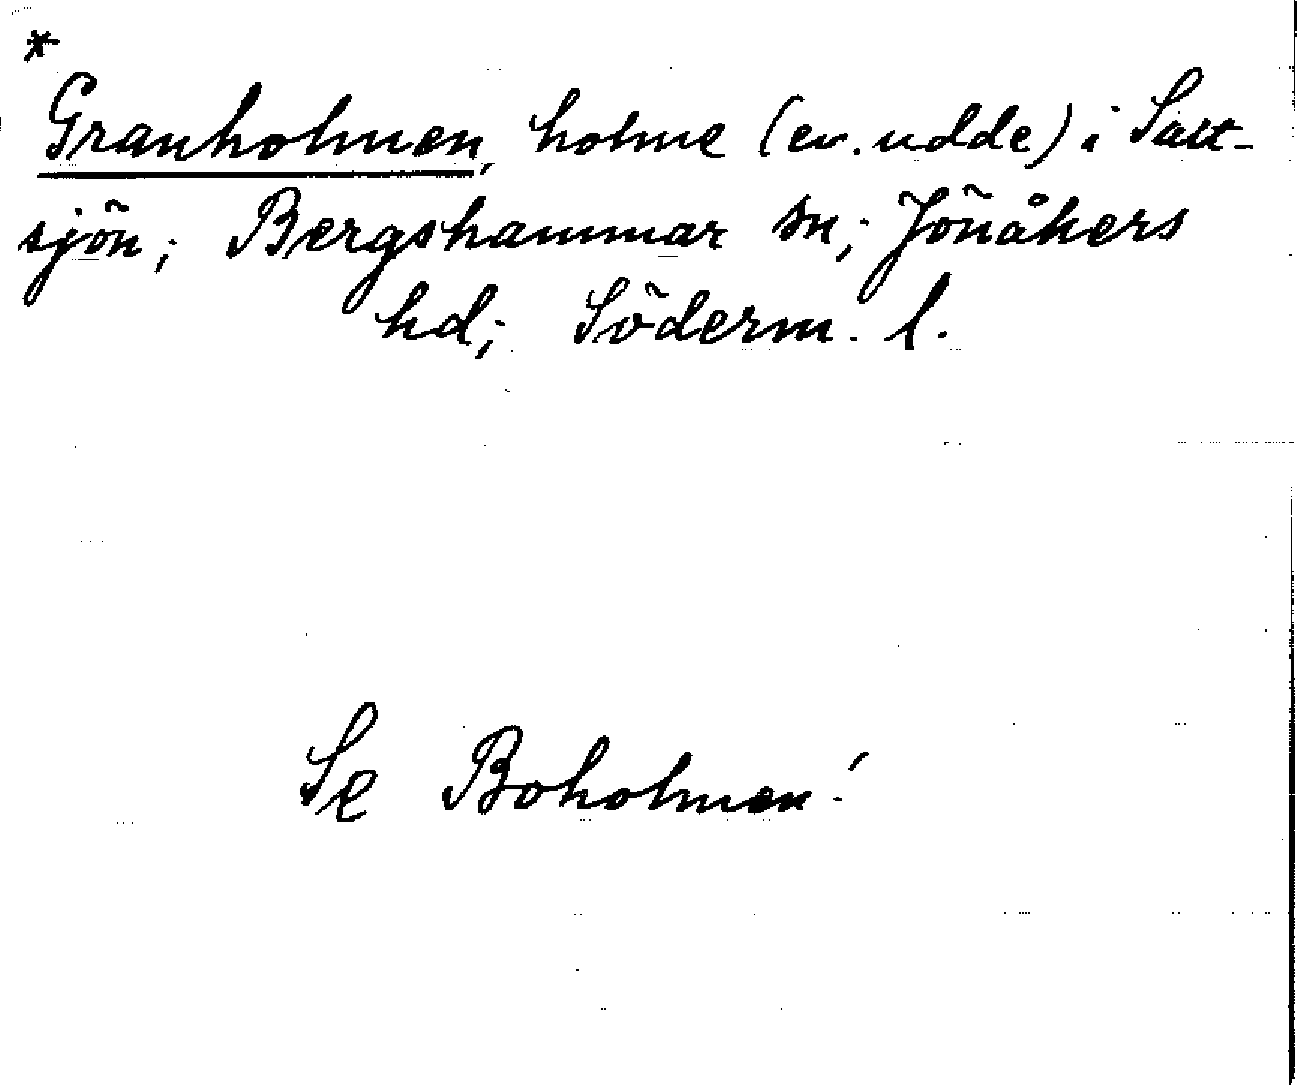 *
Granholmen, holme (ev. udde) i Salt-
sjön; Bergshammar sn; Jönåkers
hd; Söderm. l.
Se Boholmen!